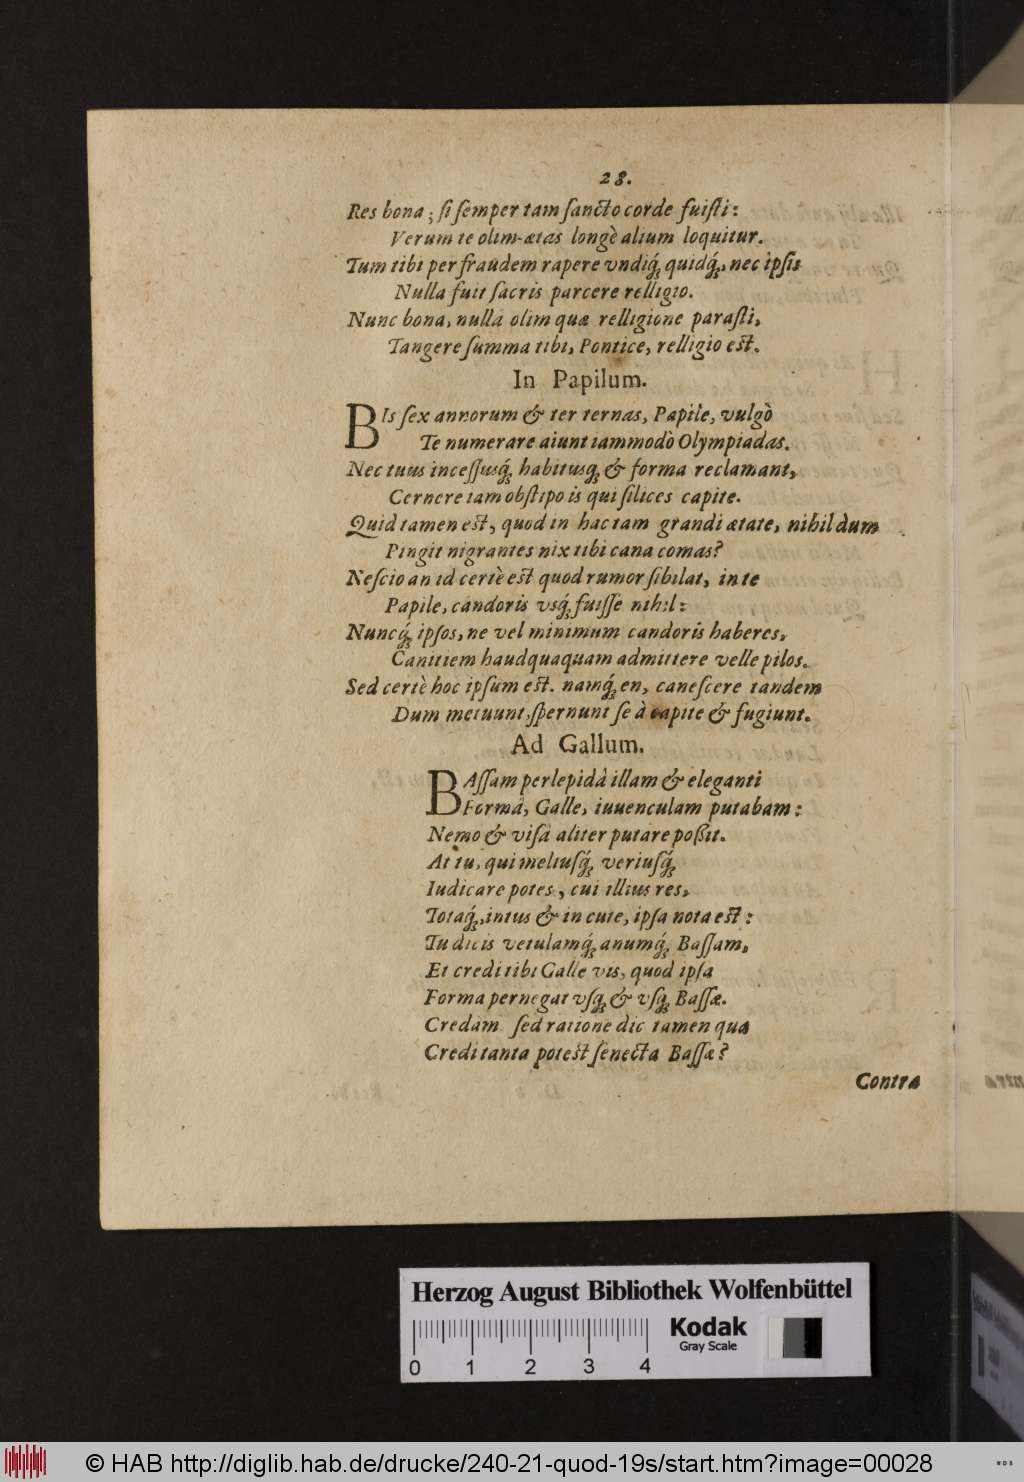 28.
Res bona; ſi ſemper tam ſancto corde fuiſti:
Verum te olim ætas longè alium loquitur.
Tum tibi per fraudem rapere vndiq́; quidq́;, nec ipſis
Nulla fuit ſacris parcere relligio.
Nunc bona, nullâ olim quæ relligione paraſti,
Tangere ſumma tibi, Pontice, relligio eſt.
In Papilum.
BIs ſex annorum & ter ternas, Papile, vulgò
Te numerare aiunt iammodò Olympiadas.
Nec tuus inceſſusq́; habitusq; & forma reclamant,
Cernere iam obſtipo is qui ſilices capite.
Quid tamen eſt, quod in hac tam grandi ætate, nihil dum
Pingit nigrantes nix tibi cana comas?
Neſcio an id certè eſt quod rumor ſibilat, in te
Papile, candoris vsq́; fuiſſe nihil:
Nuncq́; ipſos, ne vel minimum candoris haberes,
Canitiem haudquaquam admittere velle pilos.
Sed certè hoc ipſum eſt. namq́; en, caneſcere tandem
Dum metuunt, ſpernunt ſe à capite & fugiunt.
Ad Gallum.
BAſſam perlepidâ illam & eleganti
Formâ, Galle, iuuenculam putabam:
Nemo & viſâ aliter putare poßit.
At tu, qui meliuſq́; veriuſq́;
Iudicare potes, cui illius res,
Totaq́;, intus & in cute, ipſa nota eſt:
Tu dicis vetulamq́; anumq́; Baſſam,
Et credi tibi Galle vis, quod ipſa
Forma pernegat vſq; & vſq; Baſſæ.
Credam ſed ratione dic tamen qua
Credi tanta poteſt ſenecta Baſſæ?
Contra
Herzog August Bibliothek Wolfenbüttel
0 1 2 3 4
Kodak
Gray Scale
© HAB http://diglib.hab.de/drucke/240-21-quod-19s/start.htm?image=00028